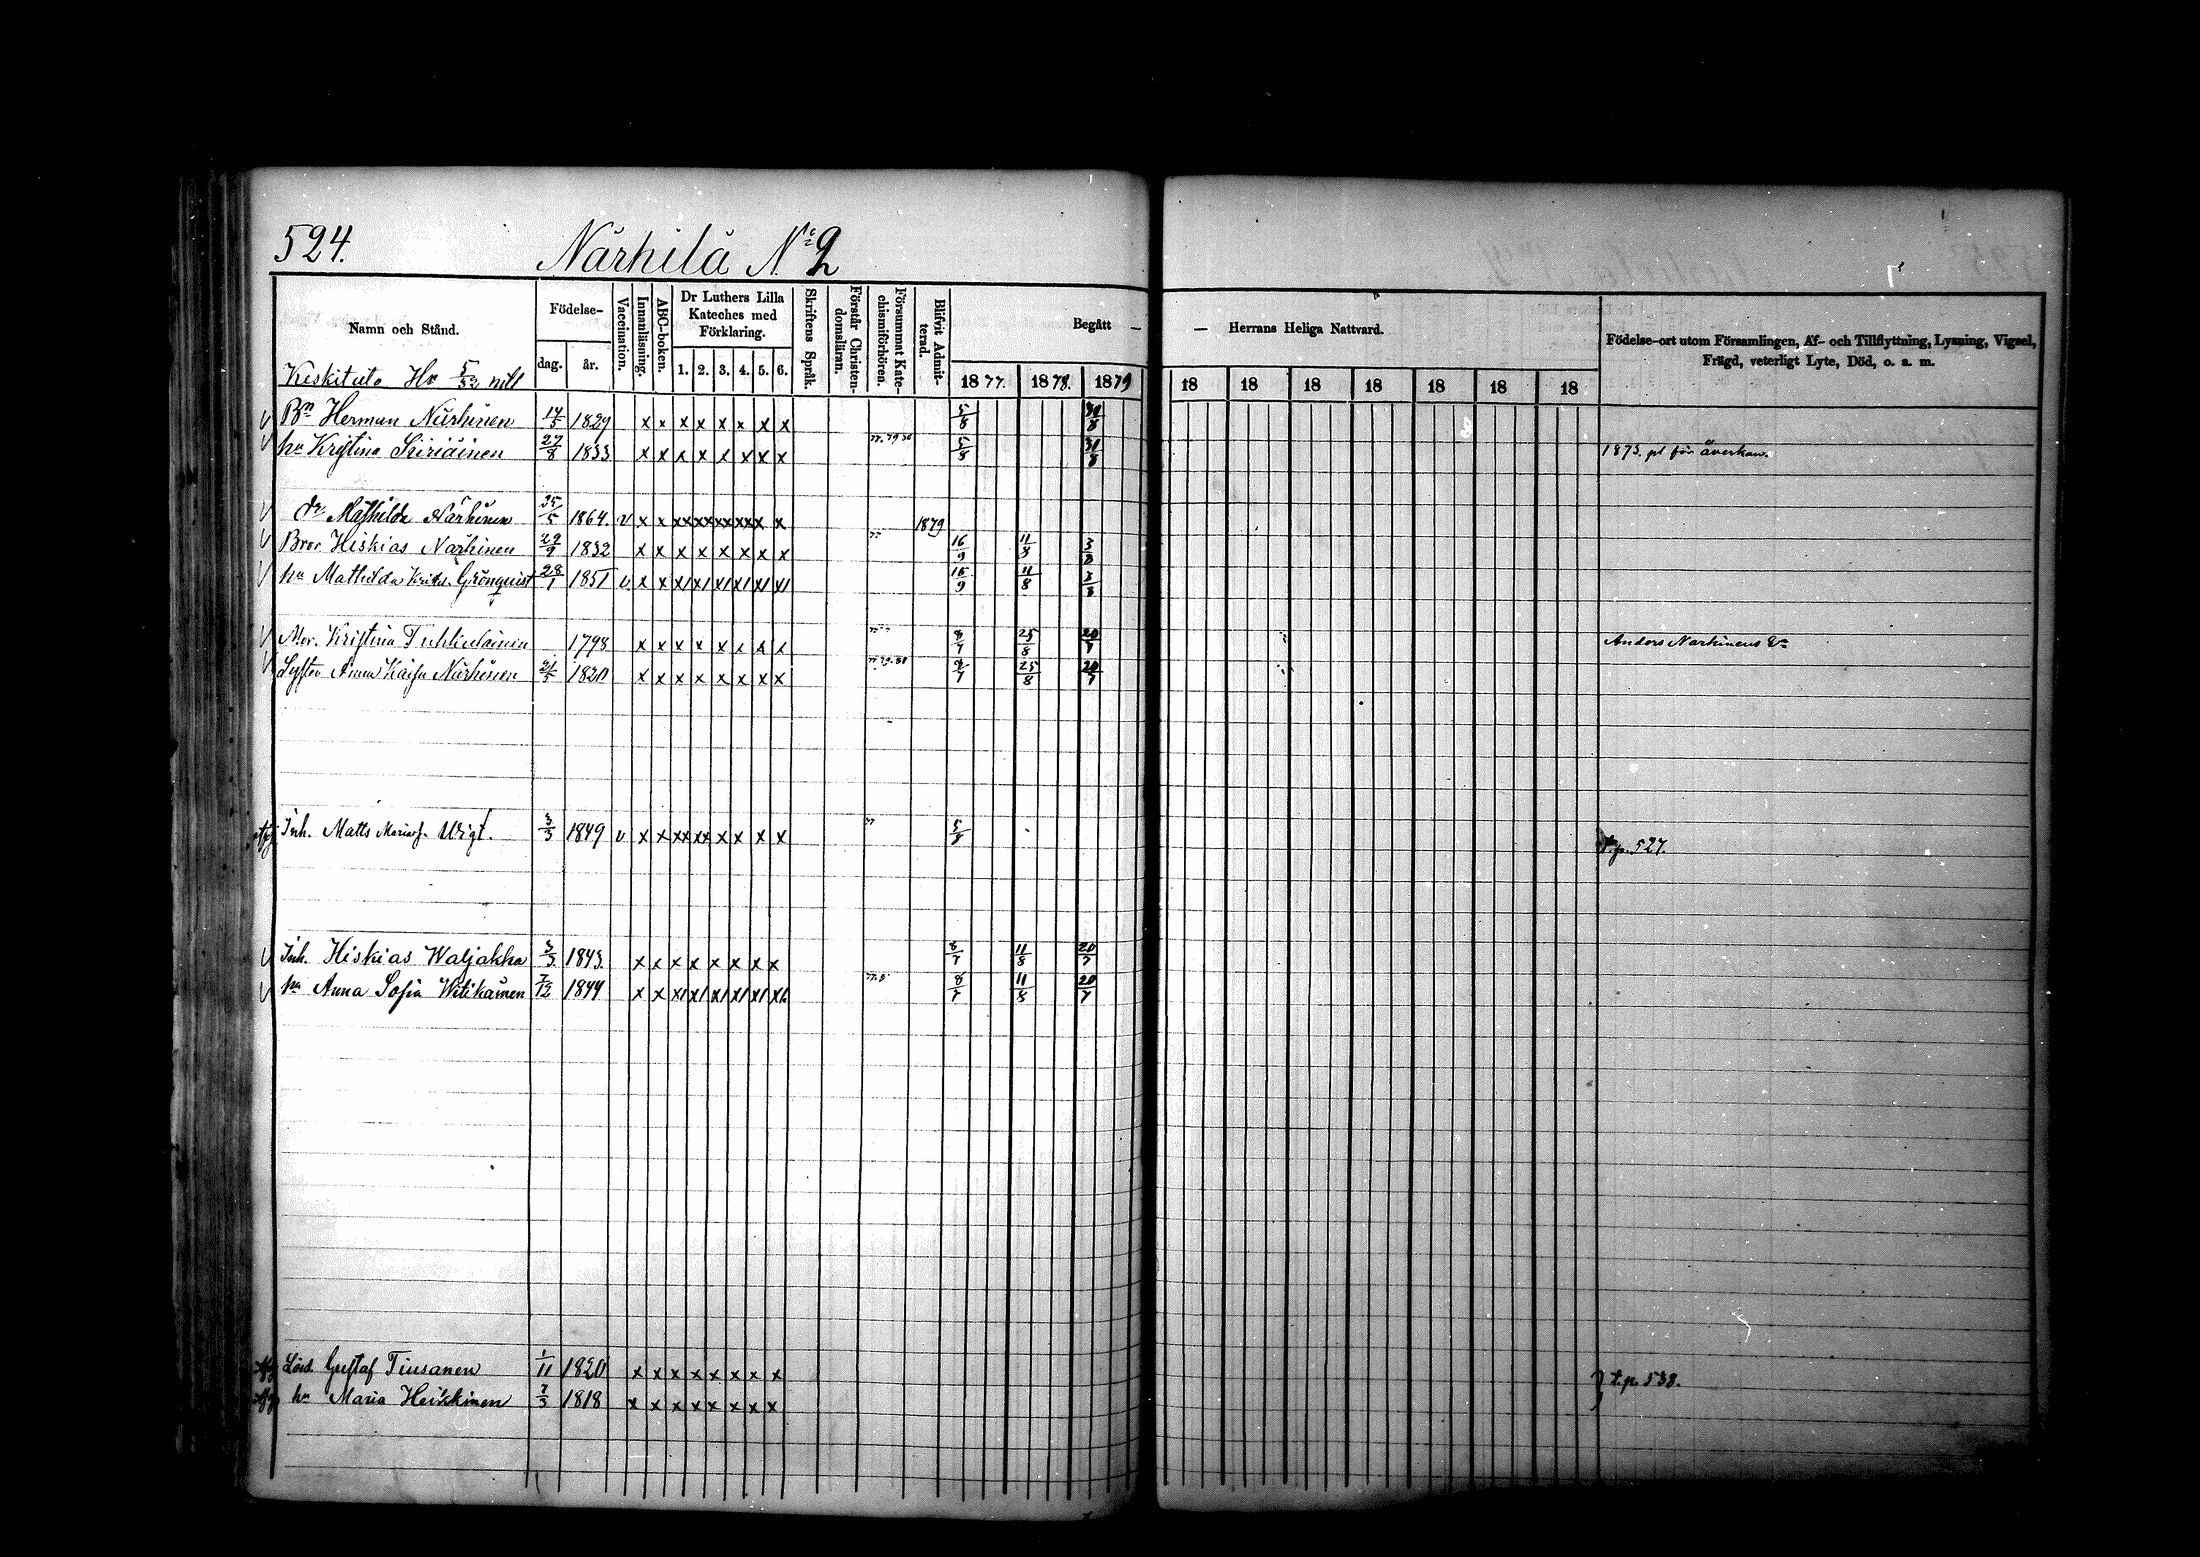 524.
Närhilä № 2
Namn och Stånd.
Födelse-
dag. år.
Vaccination.
Innanläsning.
ABC-boken.
Dr Luthers Lilla Kateches med Förklaring.
1. 2. 3. 4. 5. 6.
Skriftens Språk.
Förstår Christen-domsläran.
Försummat Kate-chismiförhören.
Blifvit Admit-terad.
Begått —
1877. 1878. 1879
— Herrans Heliga Nattvard.
18 18 18 18 18 18 18
Födelse-ort utom Församlingen, Af- och Tillflyttning, Lysning, Vigsel,
Frägd, veterligt Lyte, Död, o. a. m.
Keskitulo
Bn Herman Närhinen 14/5 1829 x x x x x x x x 5/8 31/8
hu Kristina 27/8 1833 x x x x x x x x 5/8 31/8 1873. pl för åverkan.
dr Mathilda Närhinen 25/5 1864. v x x xx xx xx xx x x 1879
Bror Hiskias Närhinen 29/9 1832 x x x x x x x x 16/9 11/8 3/8
hu Mathilda Grönquist 28/1 1851 v x x x1 x1 x1 x1 x1 x1 16/9 11/8 3/8
Mor. Kristina 1798 x x x x x x x x 8/7 25/8 20/7 Anders Närhinens
Syster Anna Kaisa Närhinen 21/5 1820 x x x x x x x x 8/7 25/8 20/7
Inh. Matts Wigt. 3/3 1849 v x x xx xx x x x x t.p. 527.
Inh. Hiskias Waljakka 3/3 1843. x x x x x x x x 8/7 11/8 20/7
hu Anna Sofia Witikainen 7/12 1844 x x x1 x1 x1 x1 x1 x1 8/7 11/8 20/7
Gustaf Tiusanen 1/11 1820 x x x x x x x x } t.p. 538.
hu Maria Heikkinen 7/3 1818 x x x x x x x x